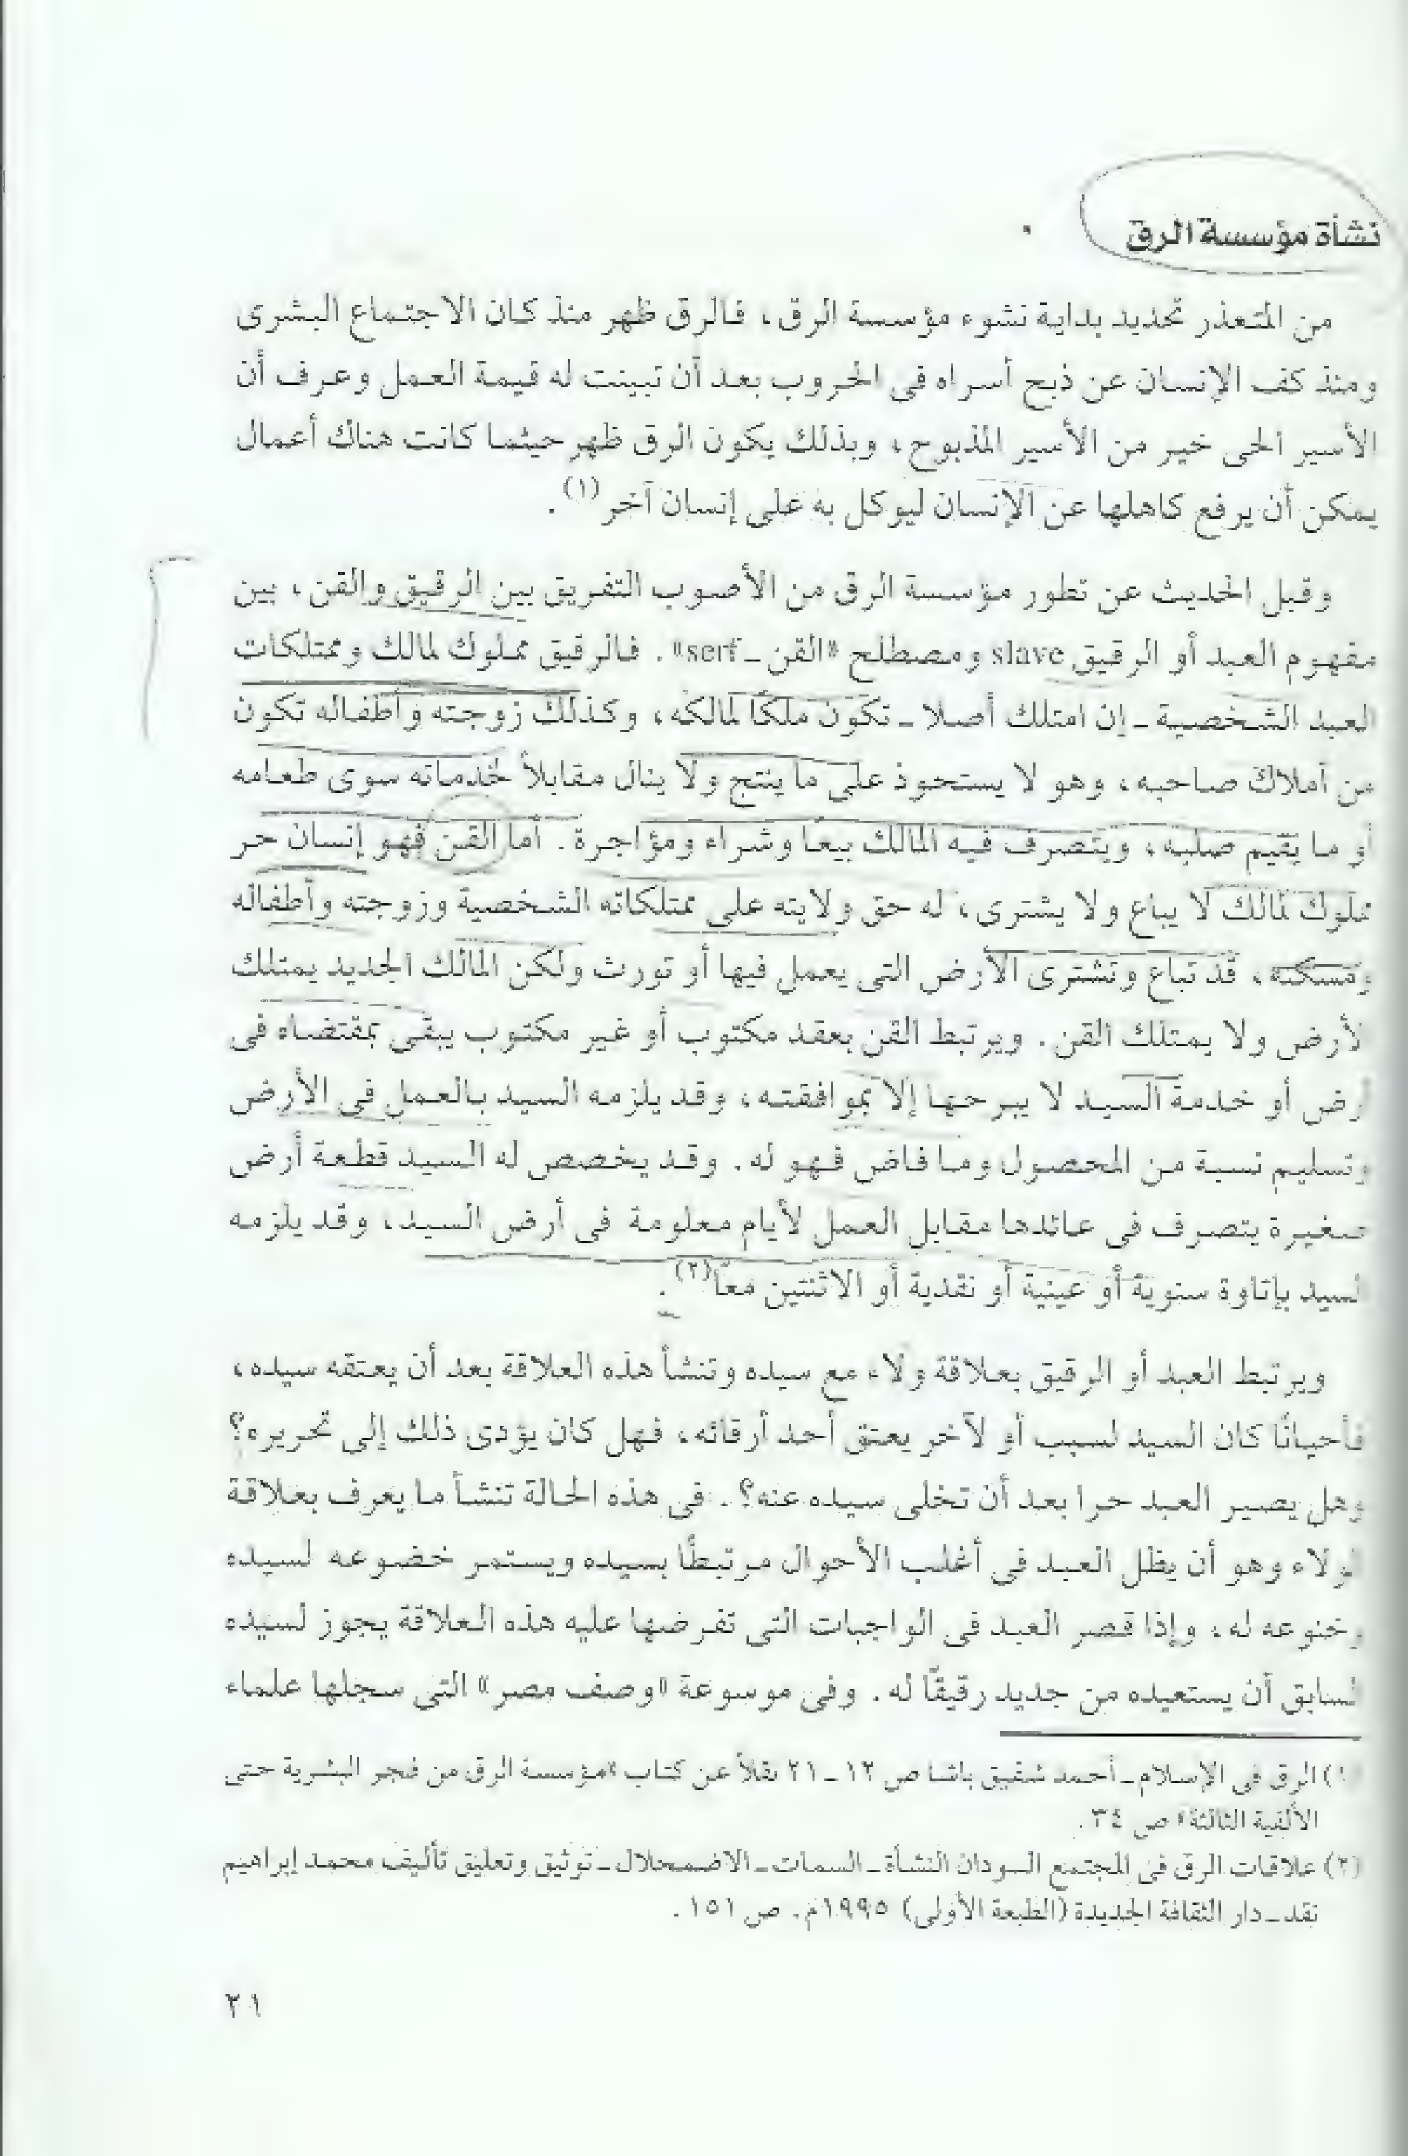 نشأة مؤسسة الرق
من المتعذر تحديد بداية نشوء مؤسسة الرق، فالرق ظهر منذ كان الاجتماع البشرى
ومنذ كف الإنسان عن ذبح أسراه فى الحروب بعد أن تبينت له قيمة العمل وعرف أن
الأسير الحى خير من الأسير المذبوح، وبذلك يكون الرق ظهر حيثما كانت هناك أعمال
يمكن أن يرفع كاهلها عن الإنسان ليوكل به على إنسان آخر(١).
وقبل الحديث عن تطور مؤسسة الرق من الأصوب التفريق بين الرقيق والقن، بين
مفهوم العبد أو الرقيق slave ومصطلح «القن ـ serf». فالرقيق مملوك لمالك وممتلكات
العبد الشخصية ـ إن امتلك أصلا ـ تكون ملكًا لمالكه، وكذلك زوجته وأطفاله تكون
من أملاك صاحبه، وهو لا يستحوذ على ما ينتج ولا ينال مقابلاً لخدماته سوى طعامه
أو ما يقيم صلبه، ويتصرف فيه المالك بيعا وشراء ومؤاجرة. أما القن فهو إنسان حر
مملوك لمالك لا يباع ولا يشترى، له حق ولايته على ممتلكاته الشخصية وزوجته وأطفاله
ومسكنه، قد تباع وتشترى الأرض التى يعمل فيها أو تورث ولكن المالك الجديد يمتلك
الأرض ولا يمتلك القن. ويرتبط القن بعقد مكتوب أو غير مكتوب يبقى بمقتضاه فى
أرض أو خدمة السيد لا يبرحها إلا بموافقته، وقد يلزمه السيد بالعمل فى الأرض
وتسليم نسبة من المحصول وما فاض فهو له. وقد يخصص له السيد قطعة أرض
صغيرة يتصرف فى عائدها مقابل العمل لأيام معلومة فى أرض السيد، وقد يلزمه
السيد بإتاوة سنوية أو عينية أو نقدية أو الاثنتين معًا(٢).
ويرتبط العبد أو الرقيق بعلاقة ولاء مع سيده وتنشأ هذه العلاقة بعد أن يعتقه سيده،
فأحيانًا كان السيد لسبب أو لآخر يعتق أحد أرقائه، فهل كان يؤدى ذلك إلى تحريره؟
وهل يصير العبد حرا بعد أن تخلى سيده عنه؟. فى هذه الحالة تنشأ ما يعرف بعلاقة
الولاء وهو أن يظل العبد فى أغلب الأحوال مرتبطًا بسيده ويستمر خضوعه لسيده
وخنوعه له، وإذا قصر العبد فى الواجبات التى تفرضها عليه هذه العلاقة يجوز لسيده
السابق أن يستعيده من جديد رقيقًا له. وفى موسوعة «وصف مصر» التى سجلها علماء
(١) الرق فى الإسلام ـ أحمد شفيق باشا ص ١٢ ـ ٢١ نقلاً عن كتاب «مؤسسة الرق من فجر البشرية حتى
الألفية الثالثة» ص ٣٤.
(٢) علاقات الرق فى المجتمع السودان النشأة ـ السمات ـ الاضمحلال ـ توثيق وتعليق تأليف محمد إبراهيم
نقد ـ دار الثقافة الجديدة (الطبعة الأولى) ١٩٩٥م. ص ١٥١.
٢١